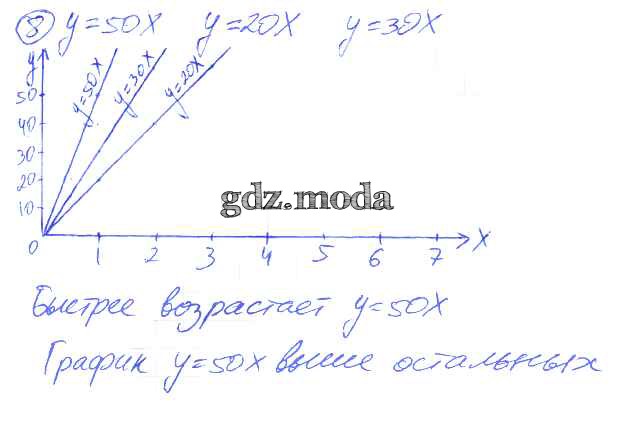 8 y=50x y=20x y=30x
y
y=50x y=30x y=20x
50
40
30
20
10
0 1 2 3 4 5 6 7 x
gdz.moda
Быстрее возрастает y=50x
График y=50x выше остальных